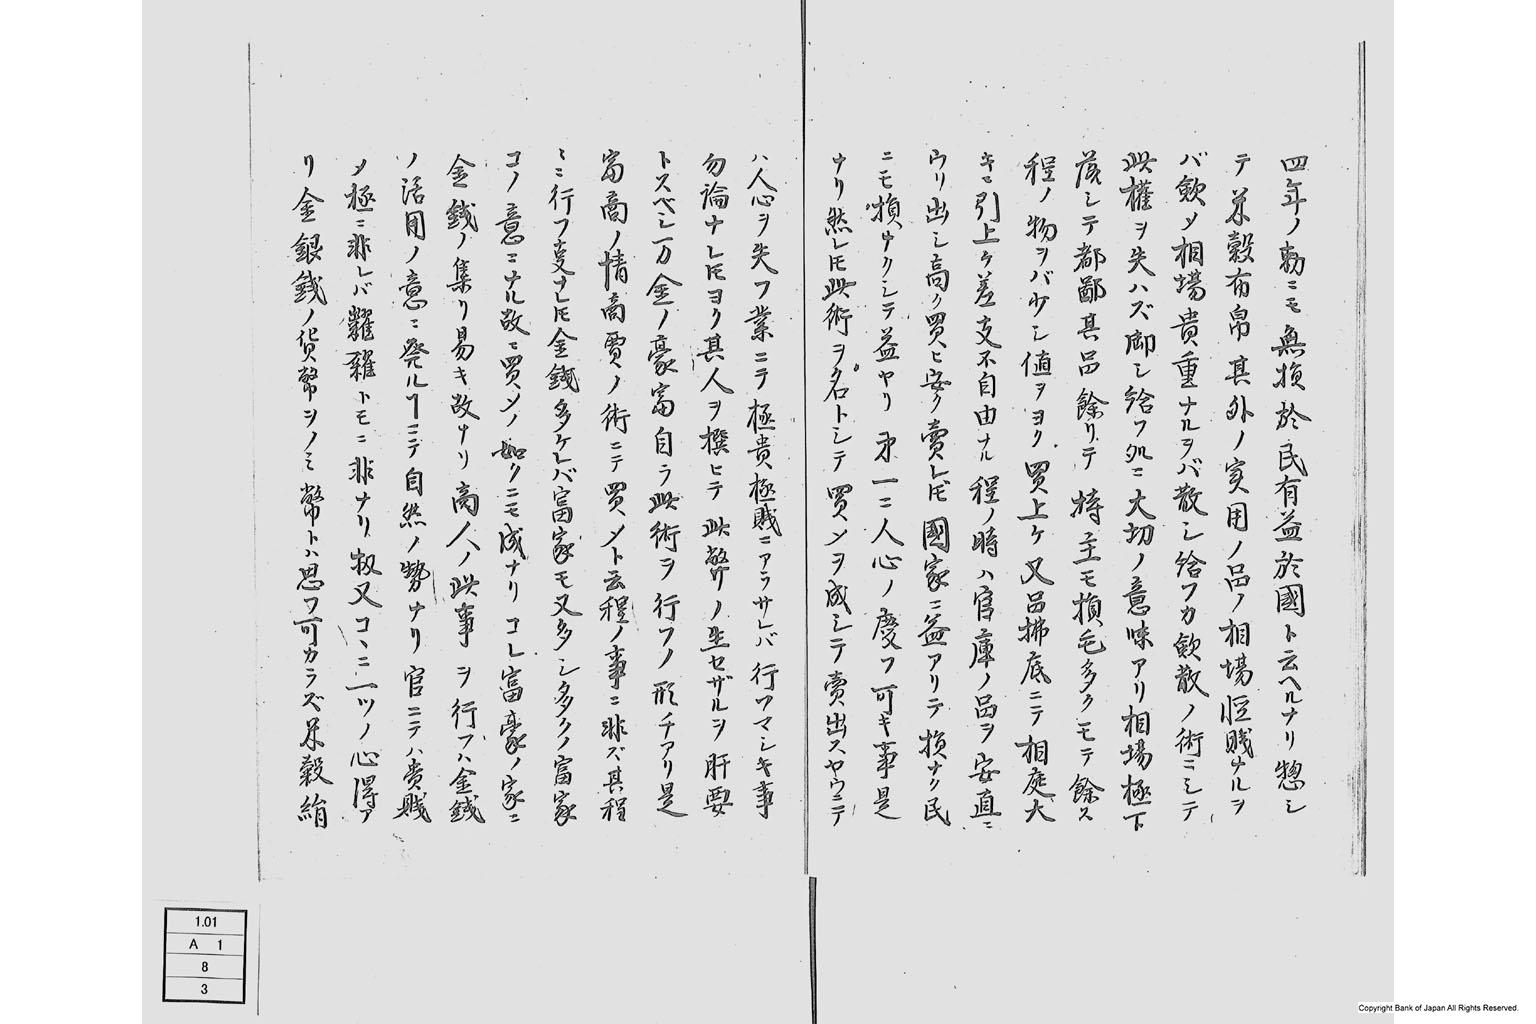 四年ノ勅ニモ無損於民有益於國ト云ヘルナリ惣シ
テ米穀布帛其外ノ実用ノ品ノ相場低賎ナルヲ
バ歛メ相場貴重ナルヲバ散シ給フカ歛散ノ術ニシテ
此權ヲ失ハズ御シ給フ処ニ大切ノ意味アリ相場極下
落シテ都鄙其品餘リテ持主モ損毛多クモテ餘ス
程ノ物ヲバ少シ値ヲヨク買上ケ又品拂底ニテ相庭大
キニ引上ケ差支不自由ナル程ノ時ハ官庫ノ品ヲ安直ニ
ウリ出シ高ク買ヒ安ク賣レドモ國家ニ益アリテ損ナク民
ニモ損ナクシテ益アリ第一ニ人心ノ慶フ可キ事是
ナリ然レトモ此術ヲ名トシテ買〆ヲ成シテ賣出スヤウニテ
ハ人心ヲ失フ業ニテ極貴極賎ニアラサレバ行フマシキ事
勿論ナレトモヨク其人ヲ撰ヒテ此弊ノ生セザルヲ肝要
トスベシ一万金ノ豪富自ラ此術ヲ行フノ形チアリ是
富商ノ情商賈ノ術ニテ買〆ト云程ノ事ニ非ズ其程
〻ニ行フ事ナレトモ金錢多ケレバ富家モ又多シ多クノ富家
コノ意ニナル故ニ買〆ノ如クニモ成ナリコレ富豪ノ家ニ
金錢ノ集リ易キ故ナリ商人ノ此事ヲ行フハ金錢
ノ活用ノ意ニ発ルヿニテ自然ノ勢ナリ官ニテハ貴賎
ノ極ニ非レバ糶糴トモニ非ナリ扨又コヽニ一ツノ心得ア
リ金銀錢ノ貨幣ヲノミ幣トハ思フ可カラズ米穀絹
1.01
A 1
8
3
Copyright Bank of Japan All Rights Reserved.